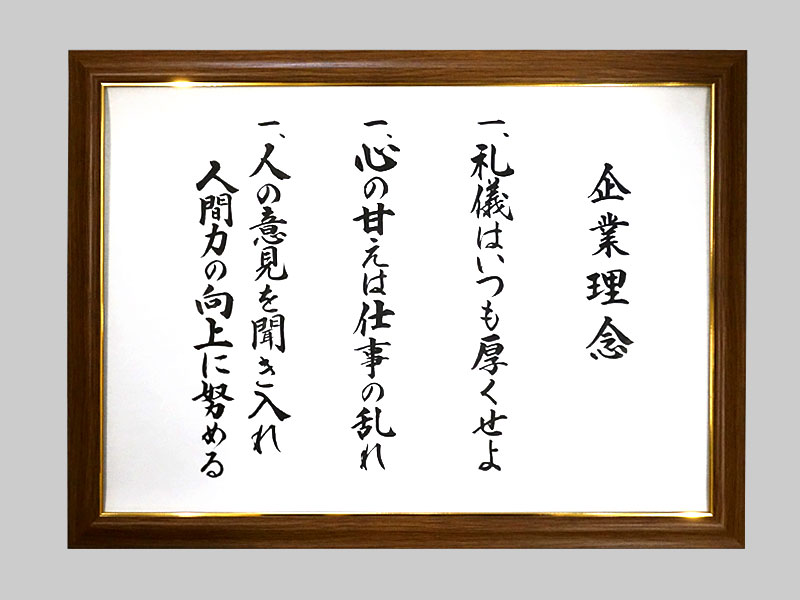 企業理念
一、礼儀はいつも厚くせよ
一、心の甘えは仕事の乱れ
一、人の意見を聞き入れ
人間力の向上に努める